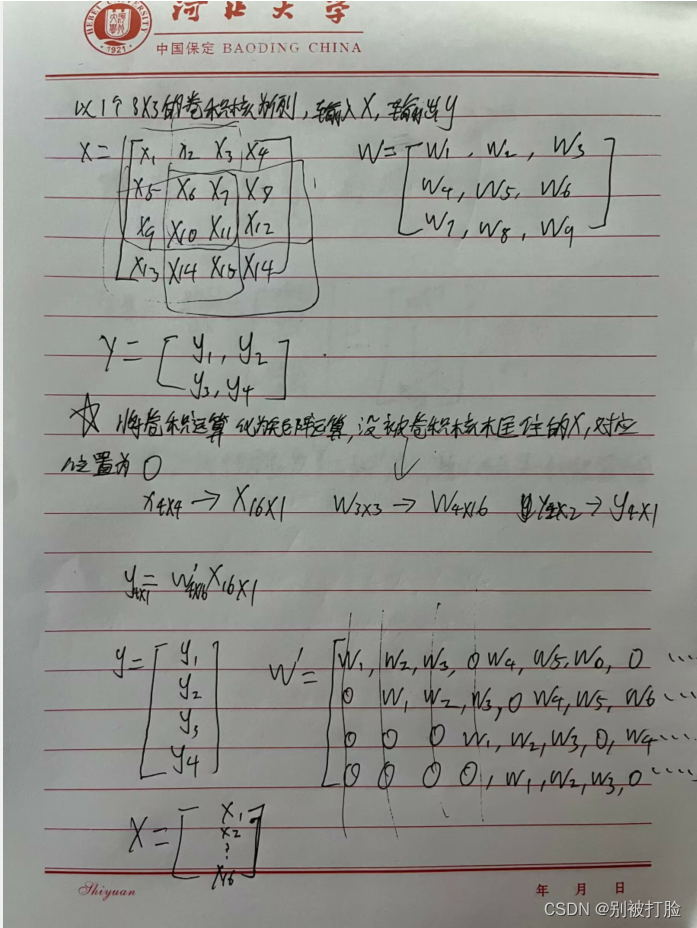 河北大学
HEBEI UNIVERSITY
1921
中国保定 BAODING CHINA
以1个3X3的卷积核为例,输入X,输出y
X= [ x1 x2 x3 x4
x5 x6 x7 x8
x9 x10 x11 x12
x13 x14 x15 x14 ]
W= [ W1, W2, W3
W4, W5, W6
W7, W8, W9 ]
Y= [ y1, y2
y3, y4 ]
☆ 将卷积运算化为矩阵运算,没被卷积核框住的X,对应
位置为0
x4x4 → X16x1 W3x3 → W4x16 Y2x2 → y4x1
y4x1= W'4x16 X16x1
y= [ y1
y2
y3
y4 ]
W'= [ W1, W2, W3, 0 W4, W5, W0, 0 ····
0 W1 W2, W3, 0 W4, W5, W6 ····
0 0 0 W1, W2, W3, 0, W4 ····
0 0 0 0, W1, W2, W3, 0 ····· ]
X= [ X1
X2
⋮
X16 ]
Shiyuan
年 月 日
CSDN @别被打脸